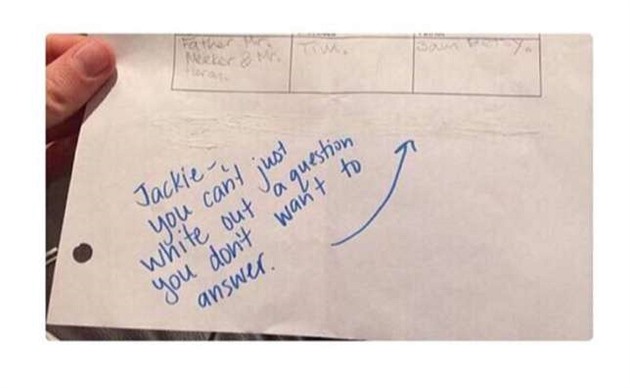 Father Mr. Tim. Sam Betsy.
Meeker & Mr.
Heron.
Jackie –
you can't just
white out a question
you don't want to
answer.